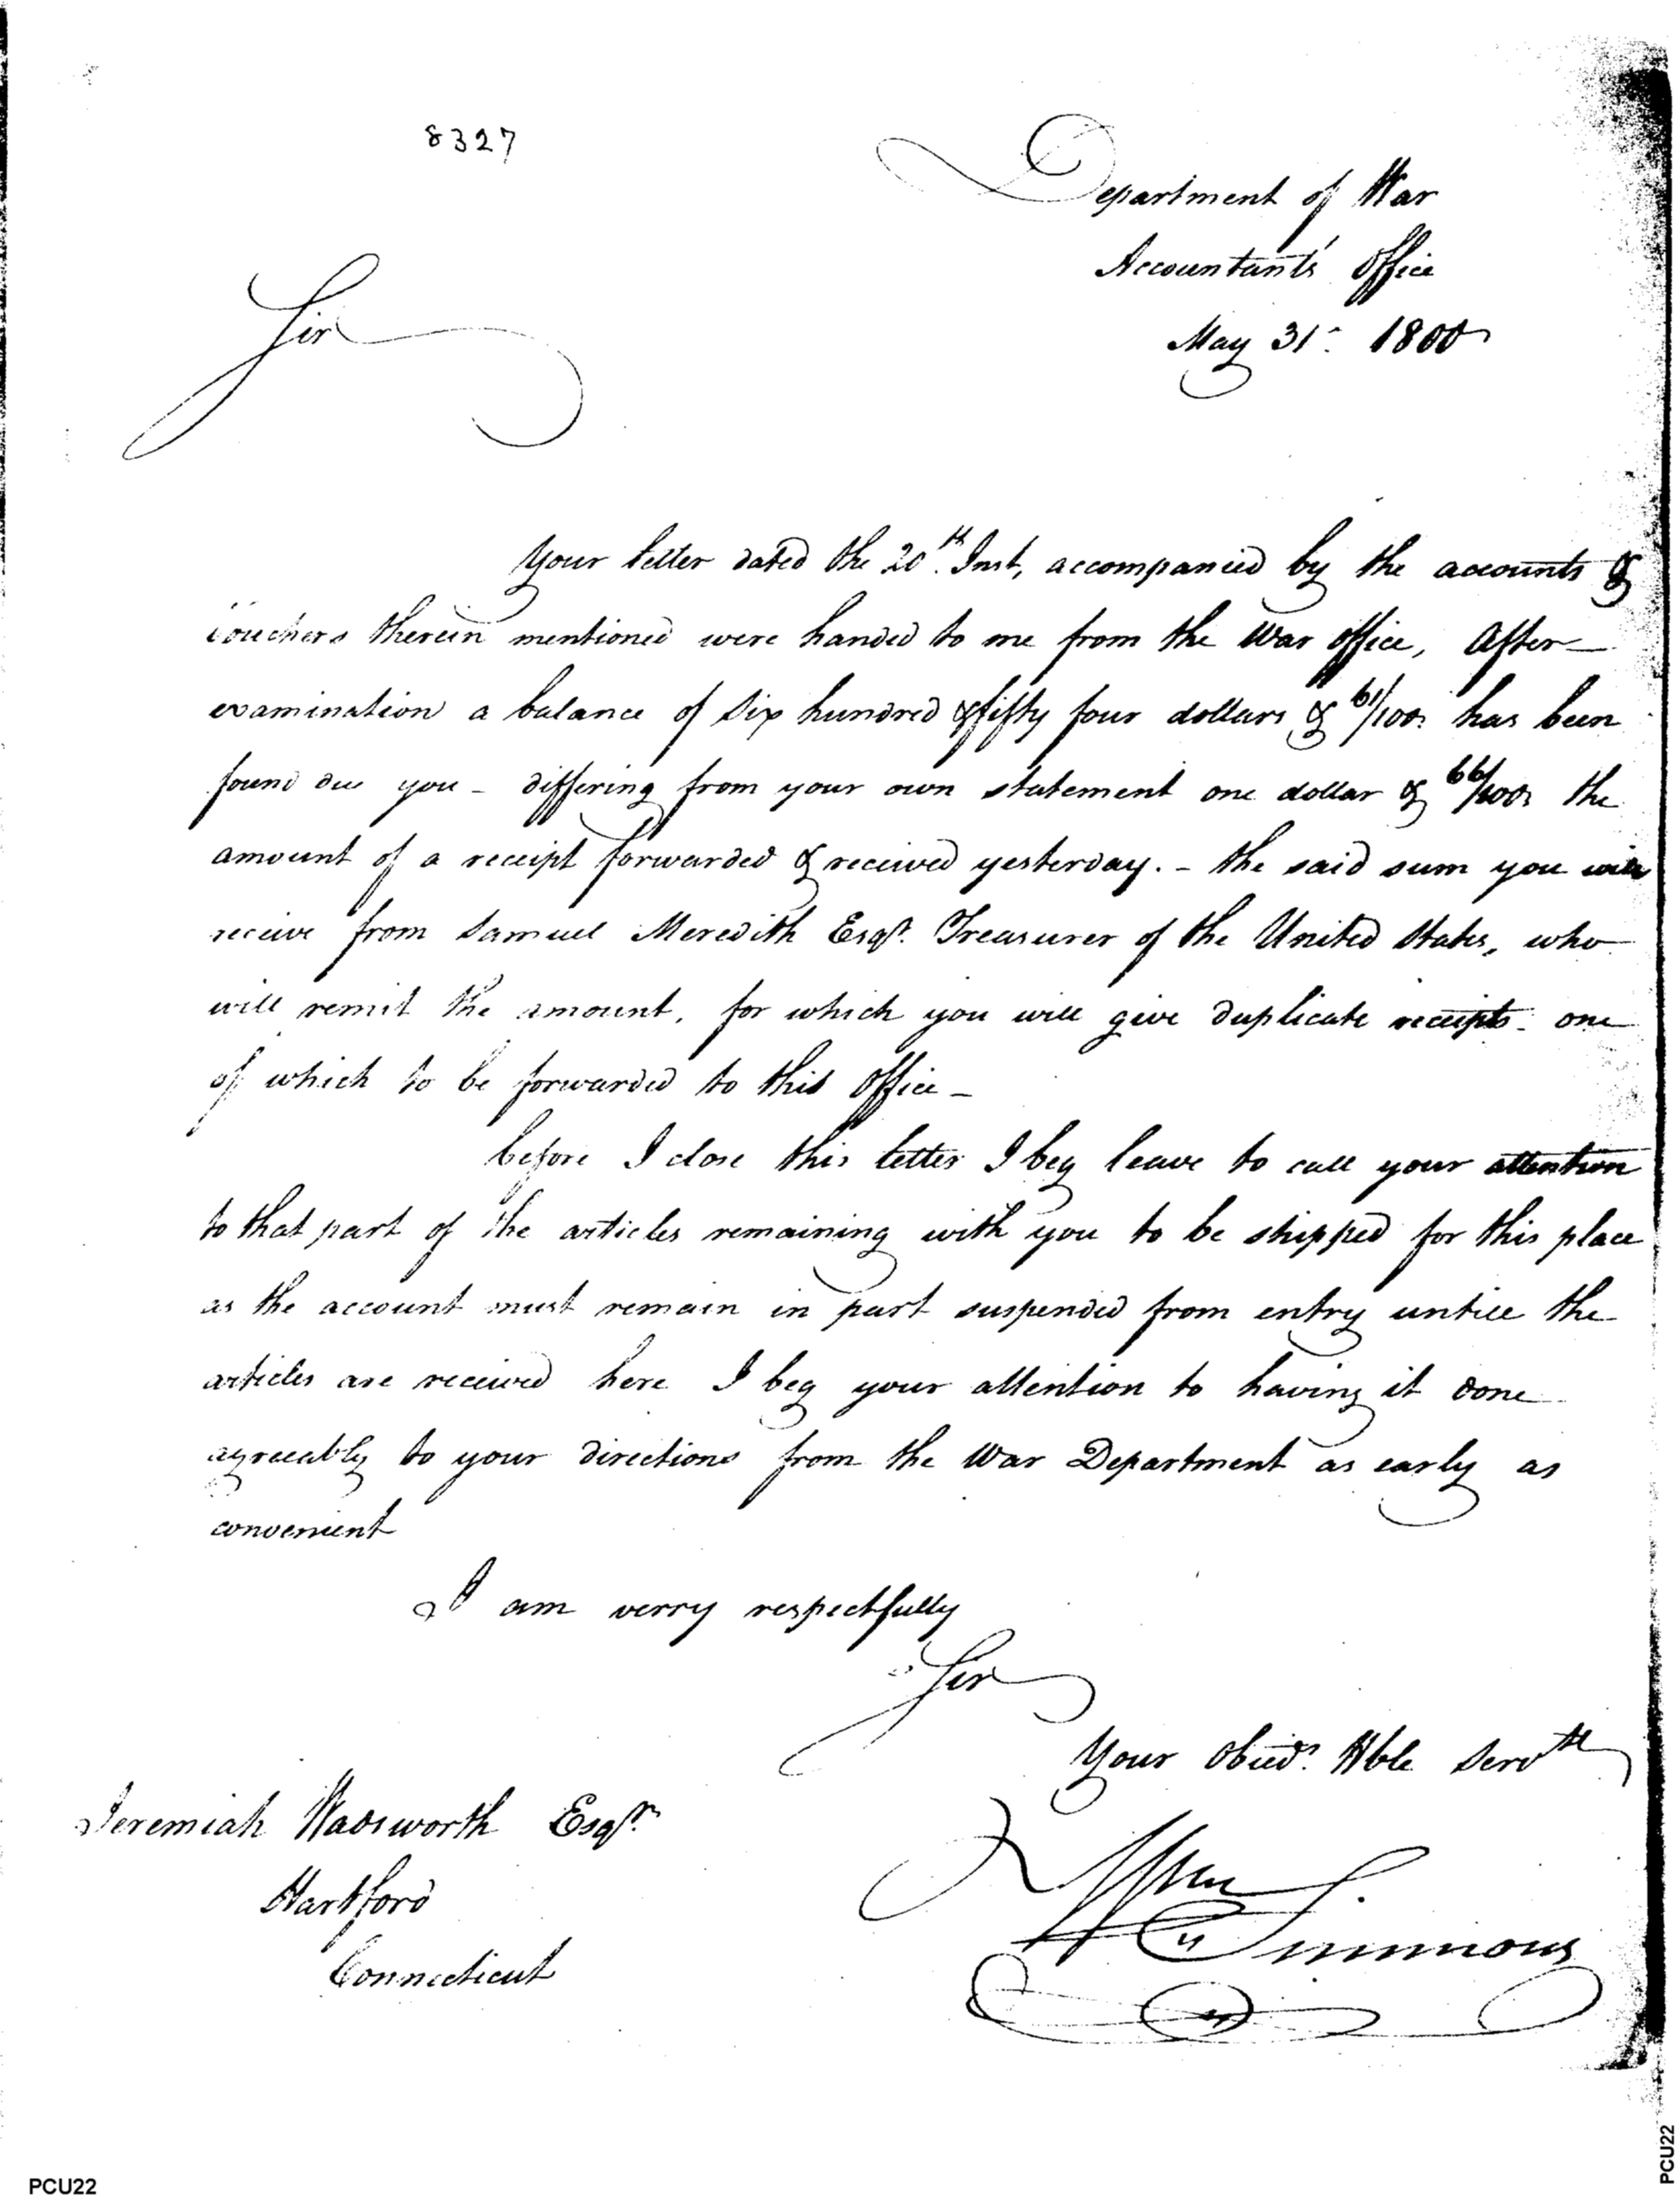 8327
Department of War
Accountant's Office
May 31st. 1800
Sir
Your letter dated the 20th. Inst, accompanied by the accounts &
vouchers therein mentioned were handed to me from the War office, After
examination a balance of Six hundred & fifty four dollars & 61/100s has been
found due you - differing from your own statement one dollar & 66/100s the
amount of a receipt forwarded & received yesterday. - the said sum you will
receive from Samuel Meredith Esqr. Treasurer of the United States, who
will remit the amount, for which you will give duplicate receipts - one
of which to be forwarded to this Office -
before I close this letter I beg leave to call your attention
to that part of the articles remaining with you to be shipped for this place
as the account must remain in part suspended from entry untill the
articles are received here I beg your attention to having it done
agreeably to your directions from the War Department as early as
convenient
I am verry respectfully
Sir
Your Obied. Hble Servt
Wm Simmons
Jeremiah Wadsworth Esqr.
Hartford
Connecticut
PCU22
PCU22